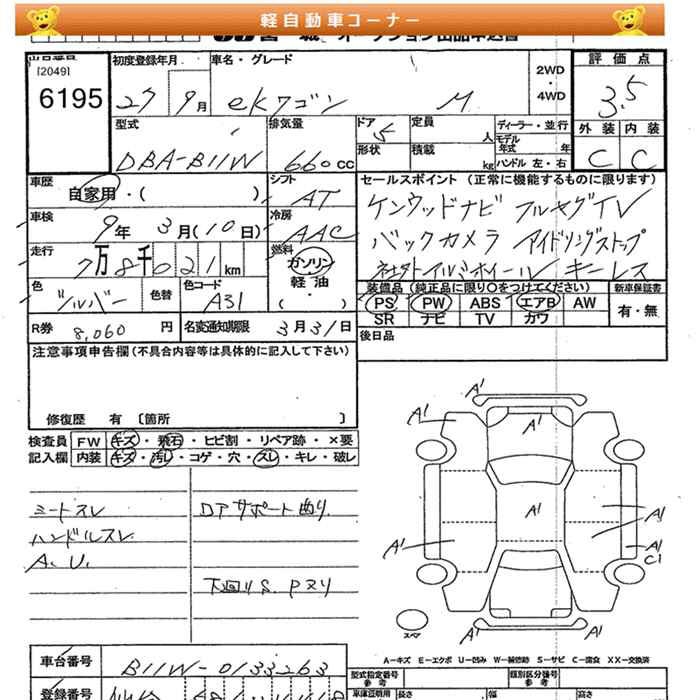 軽自動車コーナー
出品番号
[2049]
6195
初度登録年月
27 9月
車名・グレード
ekワゴン M
2WD
・
4WD
評価点
3.5
型式
DBA-B11W
排気量
660cc
ドア
5
形状
定員 人
積載 kg
ディーラー・並行
モデル
年式 年
ハンドル 左・右
外装 内装
C C
車歴
自家用・( )
シフト
AT
車検
9年 3月(10日)
冷房
AAC
走行
7万8千021km
燃料
ガソリン
・
軽油
・
( )
色
シルバー
色替
色コード
A31
R券 8,060円
名変通知期限 3月31日
セールスポイント (正常に機能するものに限ります)
ケンウッドナビ フルセグTV
バックカメラ アイドリングストップ
社外アルミホイール キーレス
装備品 (純正品に限り〇をつけてください)
PS PW ABS エアB AW
SR ナビ TV カワ
新車保証書
有・無
後日品
注意事項申告欄(不具合内容等は具体的に記入して下さい)
修復歴 有 〔箇所 〕
検査員 FW キズ・飛石・ヒビ割・リペア跡・×要
記入欄 内装 キズ・汚レ・コゲ・穴・スレ・キレ・破レ
シートスレ
ハンドルスレ
A.U.
ロアサポート曲り
下回りS.Pヌリ
A1
A1
A1
A1
A1
A1
A1
A1
C1
A1
A1
スペア
A-キズ E-エクボ U-凹み W-補修跡 S-サビ C-腐食 XX-交換済
車台番号
B11W-0133263
登録番号
型式指定番号
参考
類別区分番号
参考
車庫証明用
長さ
幅
高さ